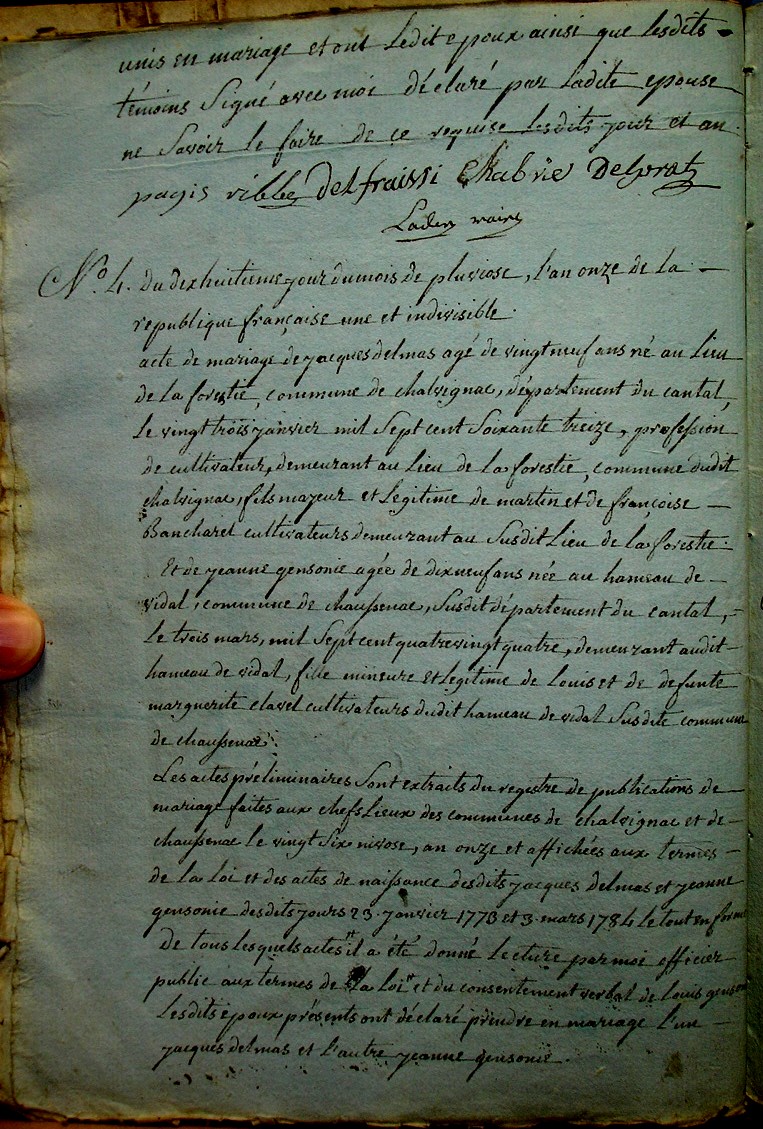 unis en mariage et ont Ledit epoux ainsi que lesdits
témoins Signé avec moi déclaré par Ladite epouse
ne Savoir le faire de ce requise lesdits jour et an
pagis delfraissi Chabrie Delprat
maire
N.º 4. Du dixhuitieme jour du mois de pluviose, l'an onze de la
republique française une et indivisible.
acte de mariage de jacques delmas agé de vingt neuf ans né au Lieu
de la forestie, commune de chalvignac, département du cantal,
Le vingt trois janvier mil Sept cent Soixante treize, profession
de cultivateur, demeurant au Lieu de La forestie, commune dudit
chalvignac, fils majeur et Legitime de martin et de françoise
Bancharel cultivateurs demeurant au Susdit Lieu de la forestie.
Et de jeanne gensonie agée de dixneuf ans née au hameau de
vidal, commune de chaussenac, Susdit département du cantal,
Le trois mars, mil Sept cent quatrevingt quatre, demeurant audit
hameau de vidal, fille mineure et Legitime de Louis et de defunte
marguerite clavel cultivateurs dudit hameau de vidal Susdite commune
de chaussenac.
Les actes préliminaires Sont extraits du registre de publications de
mariage faites aux chefs Lieux des communes de chalvignac et de
chaussenac le vingt Six nivose, an onze et affichées aux termes
de La Loi et des actes de naissance desdits jacques delmas et jeanne
gensonie desdits jours 23. janvier 1773 et 3. mars 1784 le tout en forme
De tous Lesquels actes il a été donné Lecture par moi officier
public aux termes de la Loi et du consentement verbal de Louis gensonie
Lesdits epoux présents ont déclaré prendre en mariage l'un
jacques delmas et l'autre jeanne gensonie.